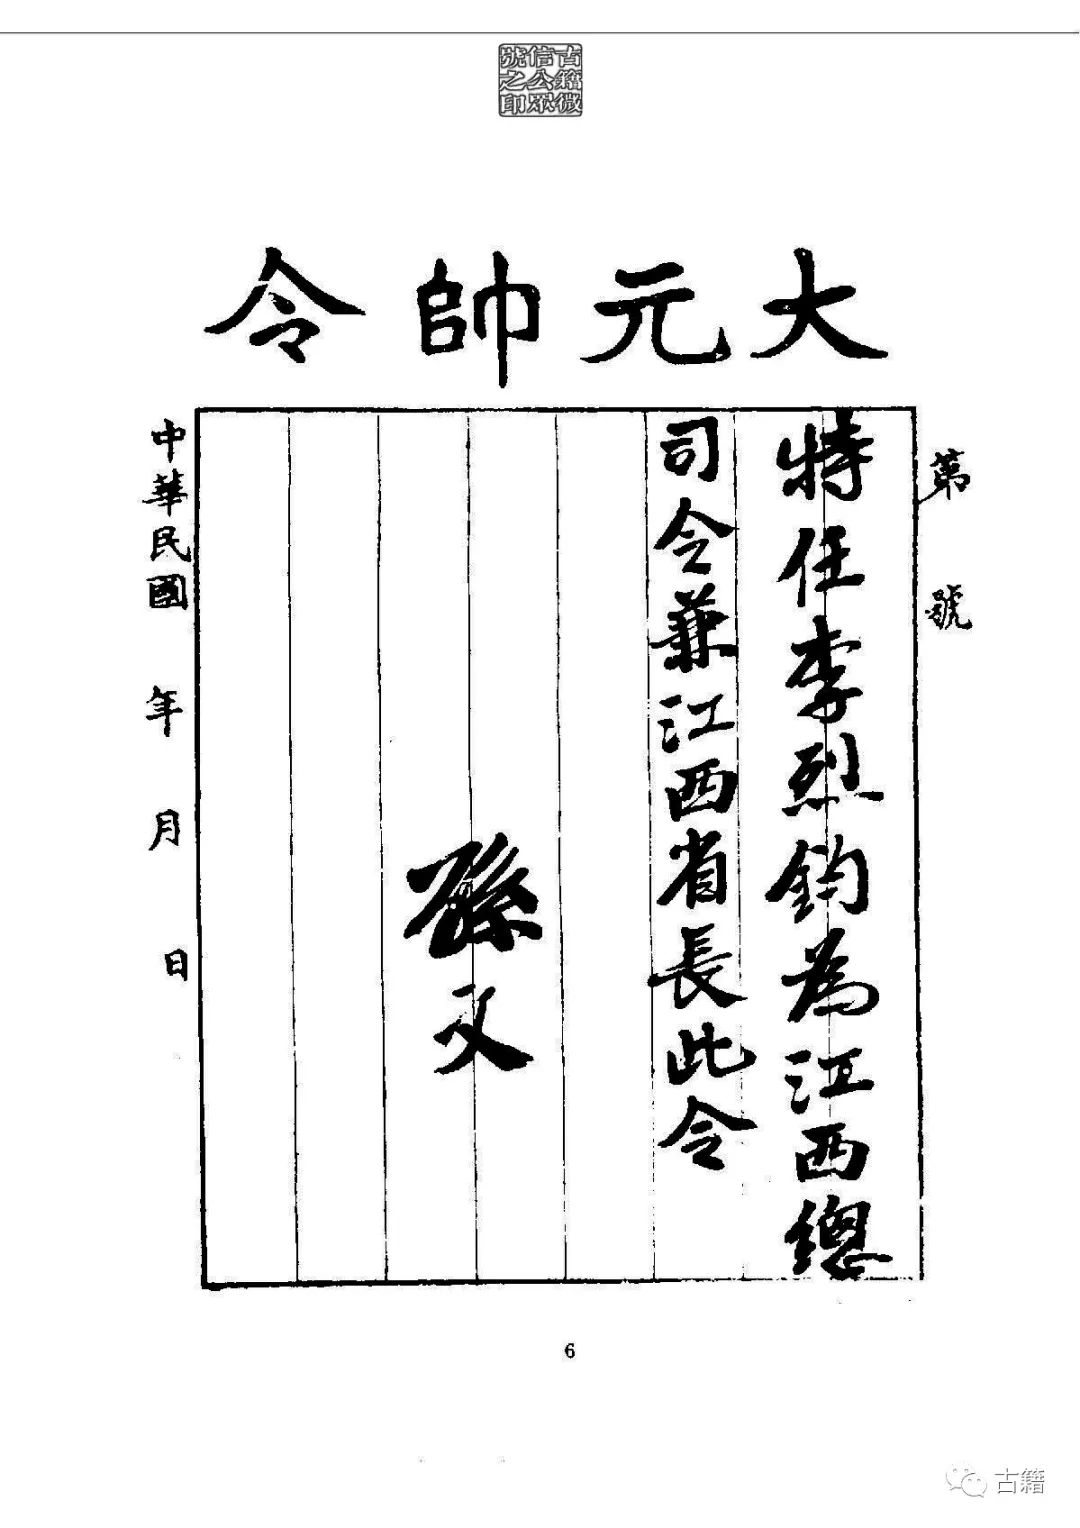 古籍微
信公眾
號之印
大元帥令
第 號
特任李烈鈞為江西總
司令兼江西省長此令
孫文
中華民國 年 月 日
6
古籍